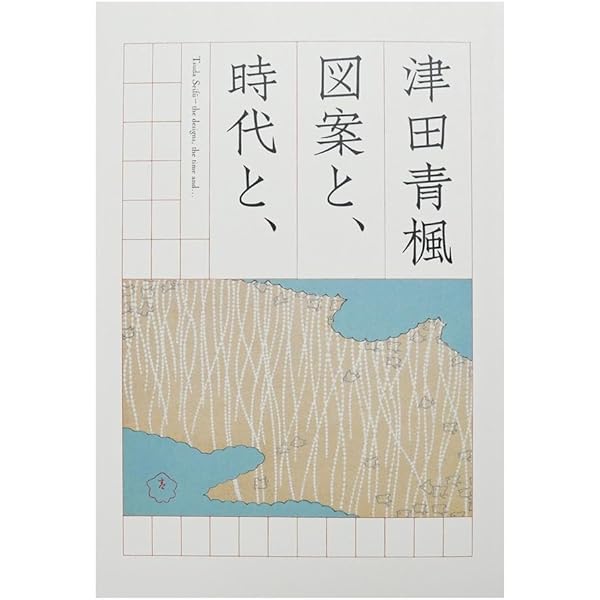 津田青楓
図案と、
時代と、
Tsuda Seifū – the designs, the time and…